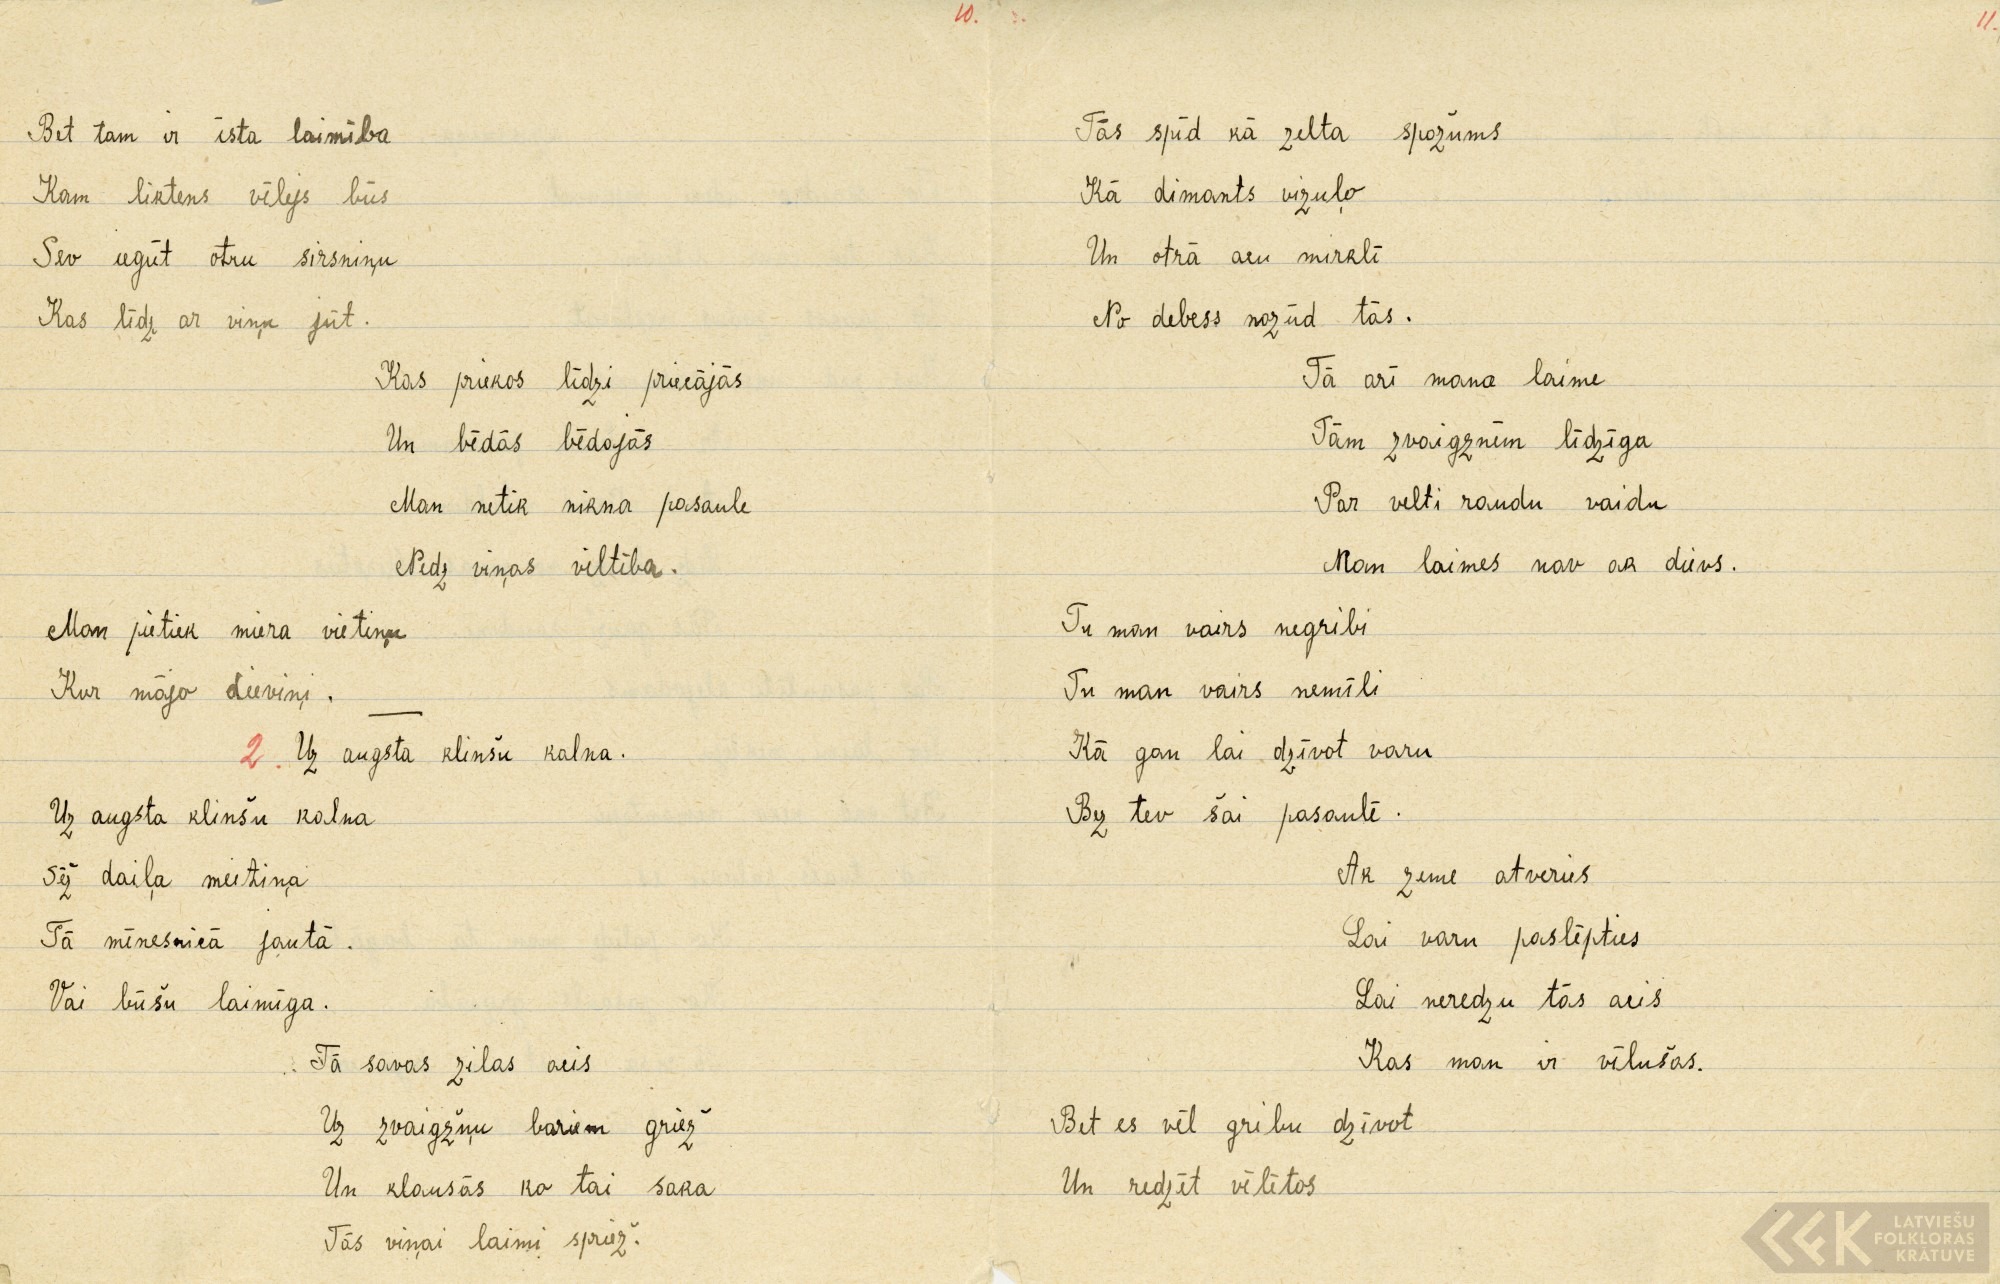 10.
Bet tam ir īsta laimība
Kam liktens vēlējs būs
Sev iegūt otru sirsniņu
Kas līdz ar viņu jūt.
Kas priekos līdzi priecājās
Un bēdās bēdajās
Man netik nikna pasaule
Nedz viņas viltība.
Man pietiek miera vietiņu
Kur mājo dieviņi.
2. Uz augsta klinšu kalna.
Uz augsta klinšu kalna
Sēž daiļa meitiņa
Tā mēnesnicā jautā.
Vai būšu laimīga.
Tā savas zilas acis
Uz zvaigžņu bariem griež
Un klausās ko tai saka
Tās viņai laimi spriež.
11.
Tās spīd kā zelta spožums
Kā dimants vizuļo
Un otrā acu mirklī
No debess nozūd tās.
Tā arī mana laime
Tām zvaigznēm līdzīga
Par velti raudu vaidu
Man laimes nav ak dievs.
Tu man vairs negribi
Tu man vairs nemīli
Kā gan lai dzīvot varu
Bez tev šai pasaulē.
Ak zeme atveries
Lai varu paslēpties
Lai neredzu tās acis
Kas man ir vīlušas.
Bet es vēl gribu dzīvot
Un redzēt vēlētos
LATVIEŠU
FOLKLORAS
KRĀTUVE